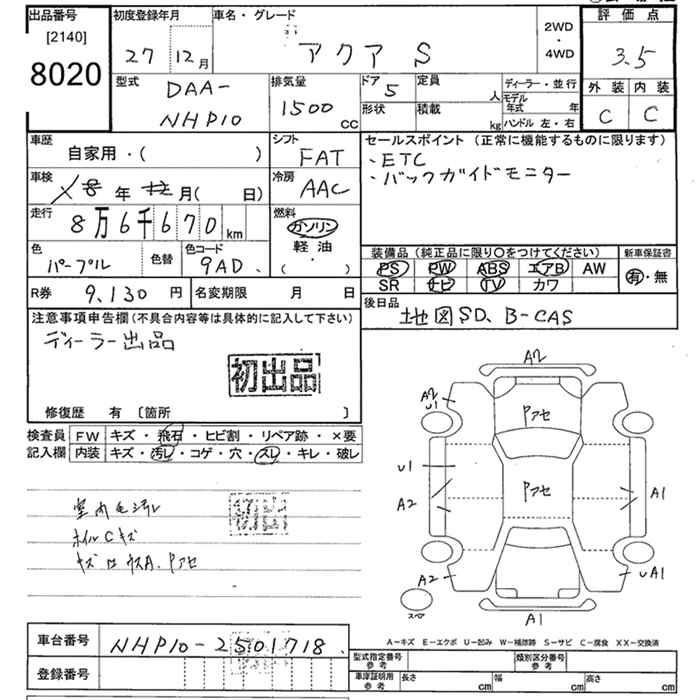 出品番号
[2140]
8020
初度登録年月
27年 12月
車名・グレード
アクア S
2WD
・
4WD
評価点
3.5
外装 内装
C C
型式
DAA-
NHP10
排気量
1500 cc
ドア 5
形状
定員 人
積載 kg
ディーラー・並行
モデル年式 年
ハンドル 左・右
車歴
自家用・( )
シフト
FAT
車検
年 月( 日)
冷房
AAC
走行
8万6千670km
燃料
ガソリン
軽油
・
( )
色
パープル
色替
色コード
9AD
セールスポイント (正常に機能するものに限ります)
・ETC
・バックガイドモニター
装備品 (純正品に限り〇をつけてください)
PS PW ABS エアB AW
SR ナビ TV カワ
新車保証書
有・無
R券 9,130 円
名変期限 月 日
後日品 地図SD、B-CAS
注意事項申告欄(不具合内容等は具体的に記入して下さい)
ディーラー出品
初出品
修復歴 有 〔箇所 〕
検査員
記入欄
FW キズ・飛石・ヒビ割・リペア跡・×要
内装 キズ・汚レ・コゲ・穴・スレ・キレ・破レ
室内毛汚レ
ホイルCキズ
A2
A2
U1
Pアセ
U1
A2
Pアセ
A1
A2
UA1
スペア
A1
A-キズ E-エクボ U-凹み W-補修跡 S-サビ C-腐食 XX-交換済
車台番号 NHP10-2501718
登録番号
型式指定番号
参考
類別区分番号
参考
車庫証明用
参考
長さ cm
幅 cm
高さ cm